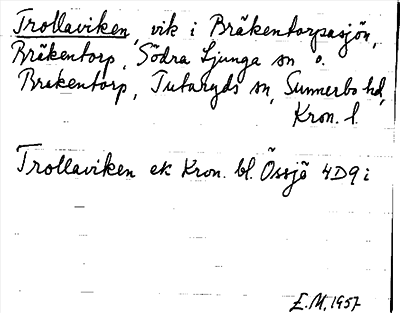 Trollaviken, vik i Bräkentorpasjön,
Bräkentorp, Södra Ljunga sn o.
Bräkentorp, Tutaryds sn, Sunnerbo hd,
Kron. l.
Trollaviken ek Kron. bl. Össjö 4D9i
E.M. 1957